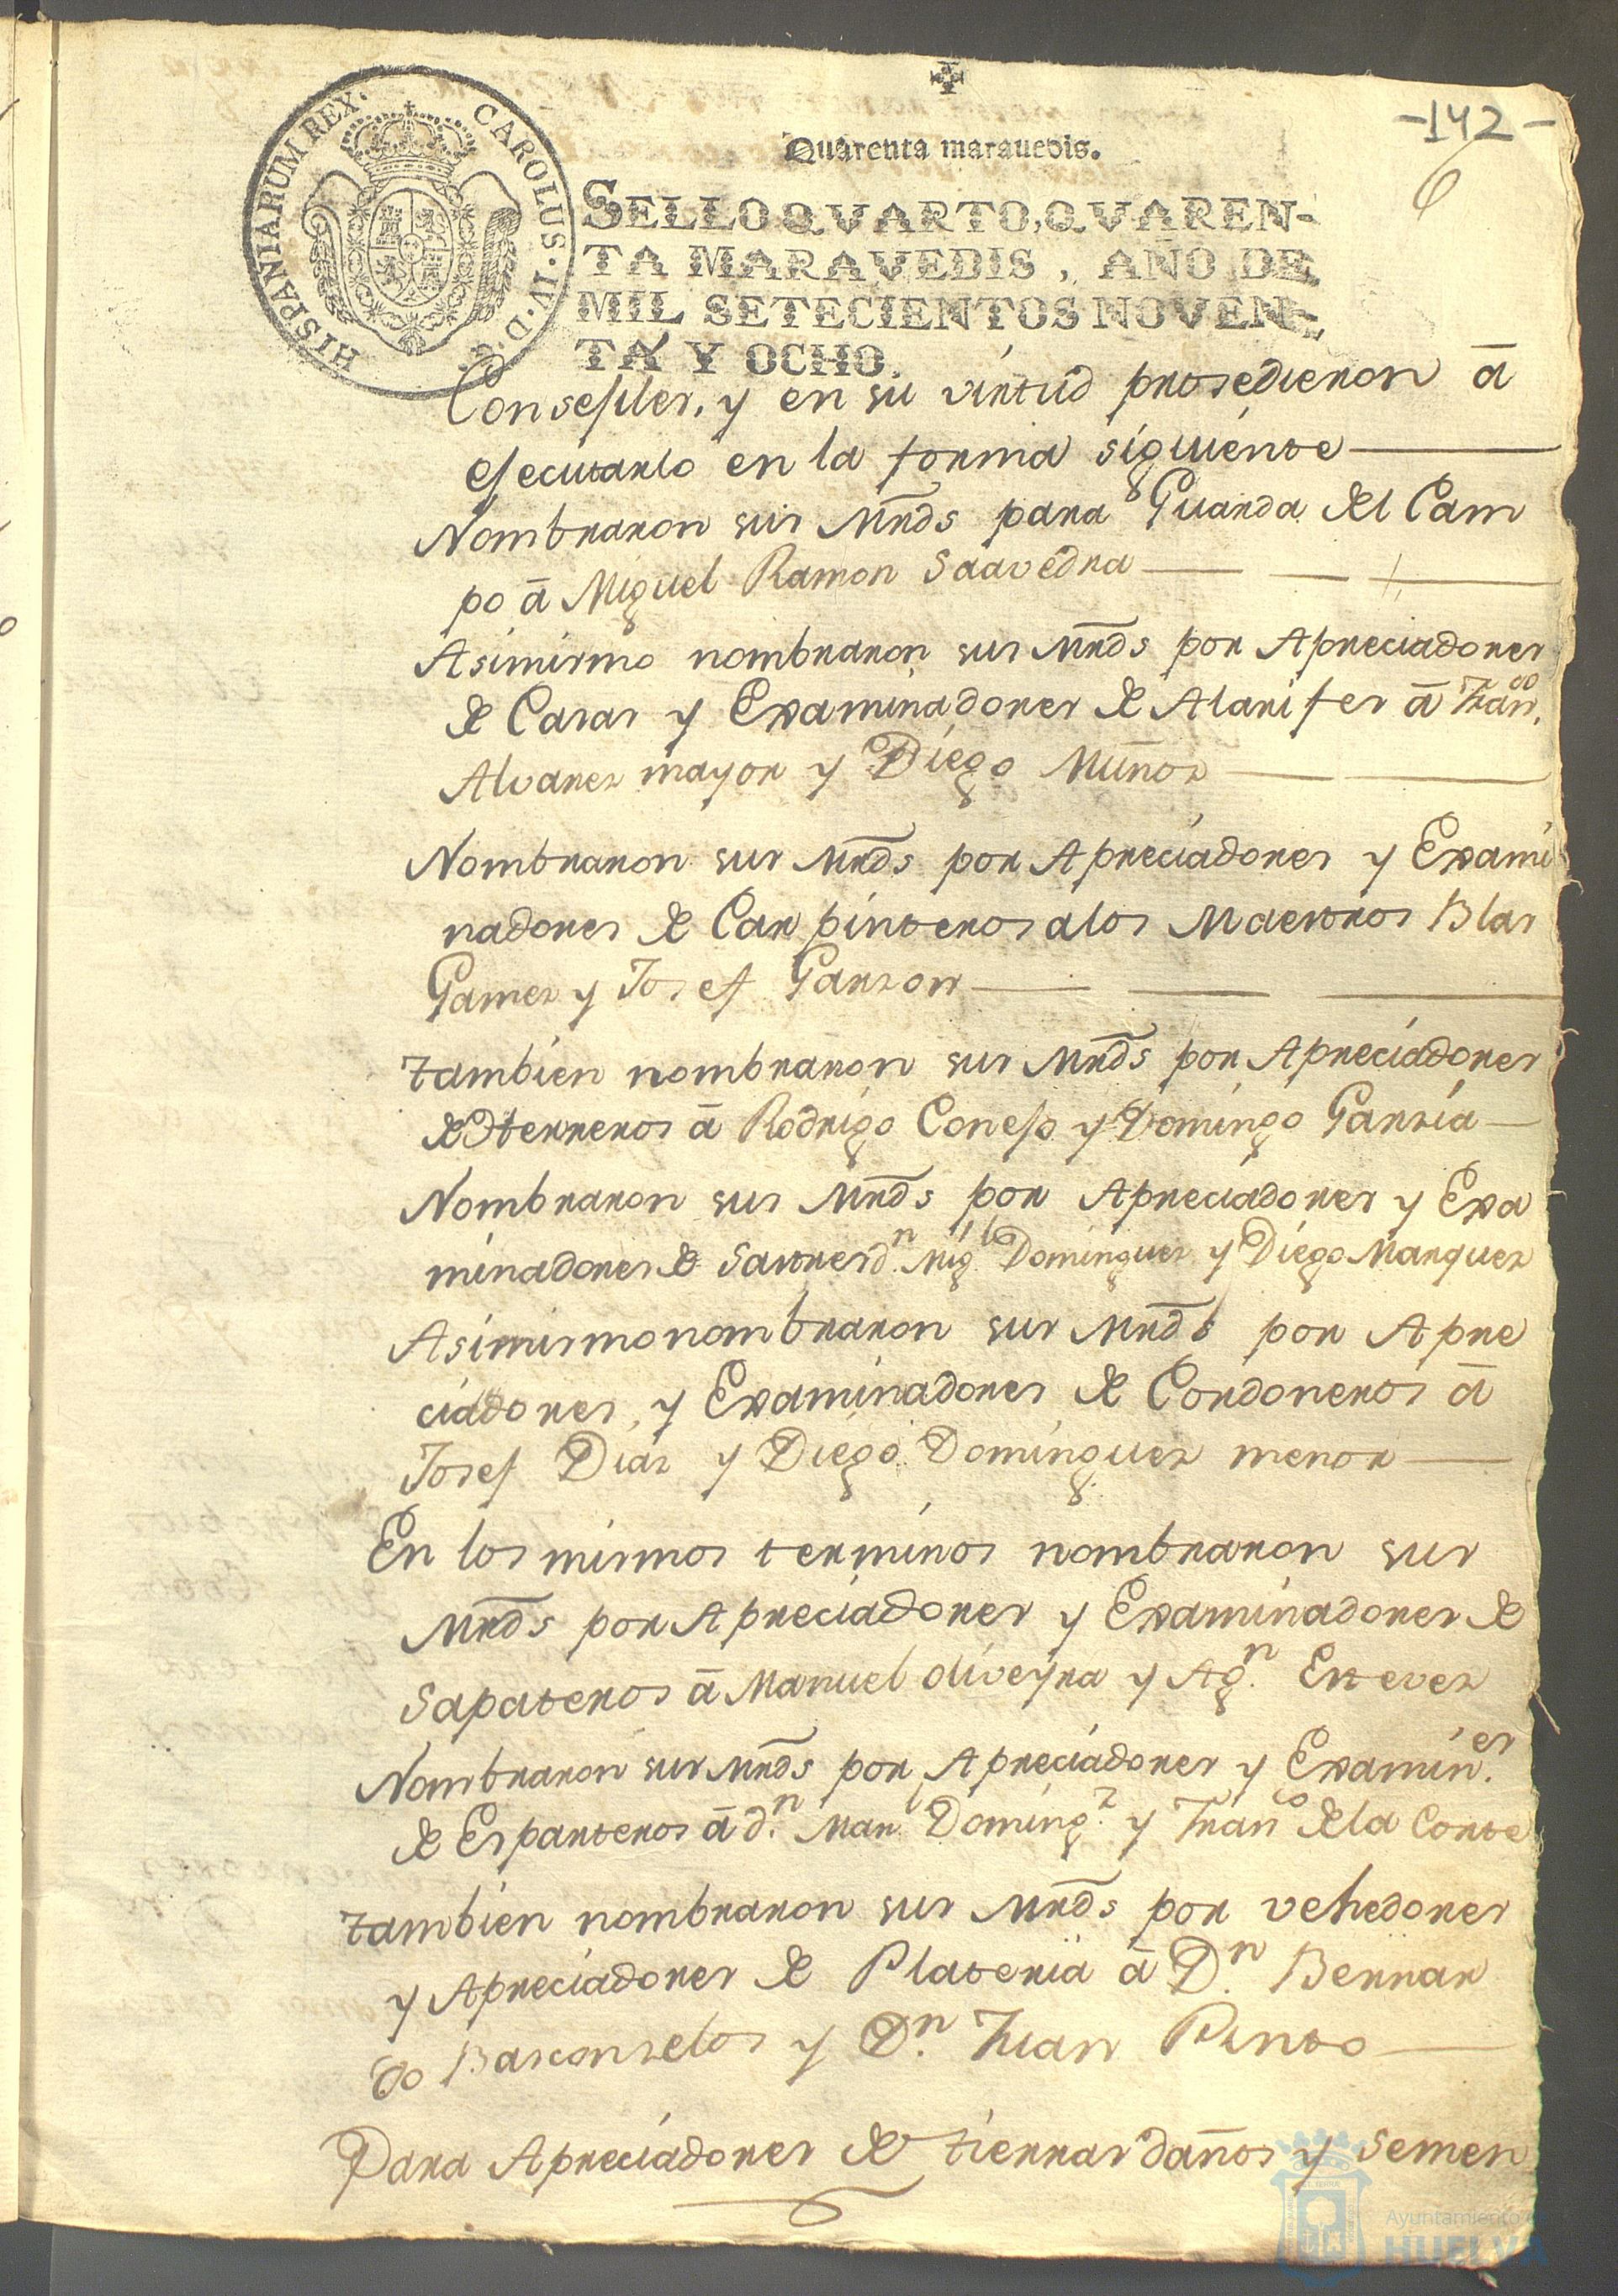 -142-
6
Quarenta marauedis.
HISPANIARUM REX. CAROLUS·IV·D·G·
SELLO QVARTO, QVAREN-
TA MARAVEDIS, AÑO DE
MIL SETECIENTOS NOVEN-
TA Y OCHO.
Consejiles, y en su virtud prosedieron á
ejecutarlo en la forma siguiente
Nombraron sus Mrds para Guarda del Cam
po á Miguel Ramon Saavedra
Asimismo nombraron sus Mrds por Apreciadores
de Casas y Examinadores de Alarifes á Franco.
Alvarez mayor y Diego Muñoz
Nombraron sus Mrds por Apreciadores y Exami
nadores de Carpinteros a los Maestros Blas
Gamez y Josef Garzon
tambien nombraron sus Mrds por Apreciadores
de Herreros á Rodrigo Conejo y Domingo Garzia
Nombraron sus Mrds por Apreciadores y Exa
minadores de Sastres dn. Migl. Dominguez y Diego Marquez
Asimismo nombraron sus Mrds por Apre
ciadores, y Examinadores de Cordoneros á
Josef Diaz y Diego Dominguez menor
En los mismos terminos nombraron sus
Mrds por Apreciadores y Examinadores de
Sapateros á Manuel oliveyra y Agn. Estevez
Nombraron sus Mrds por Apreciadores y Examines.
de Esparteros á dn. Manl. Domingz. y Franco de la Corte
tambien nombraron sus Mrds por vehedores
y Apreciadores de Plateria á Dn. Bernar
do Basconzelos y Dn. Juan Pinto
Para Apreciadores de tierras daños y semen
Ayuntamiento de
HUELVA